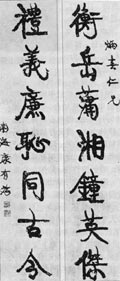 仁兄
衡岳蕭湘鐘英傑
禮義廉恥同古今
南海康有為